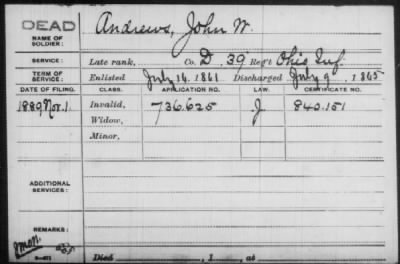 DEAD
NAME OF SOLDIER: Andrews, John W.
SERVICE: Late rank, Co. D. 39 Reg't Ohio Inf.
TERM OF SERVICE: Enlisted July 16. 1861. Discharged July 9, 1865
DATE OF FILING. CLASS. APPLICATION NO. LAW. CERTIFICATE NO.
1889 Nov. 1. Invalid, 736.625 J 840.151
Widow,
Minor,
ADDITIONAL SERVICES:
REMARKS:
Died , 1 , at